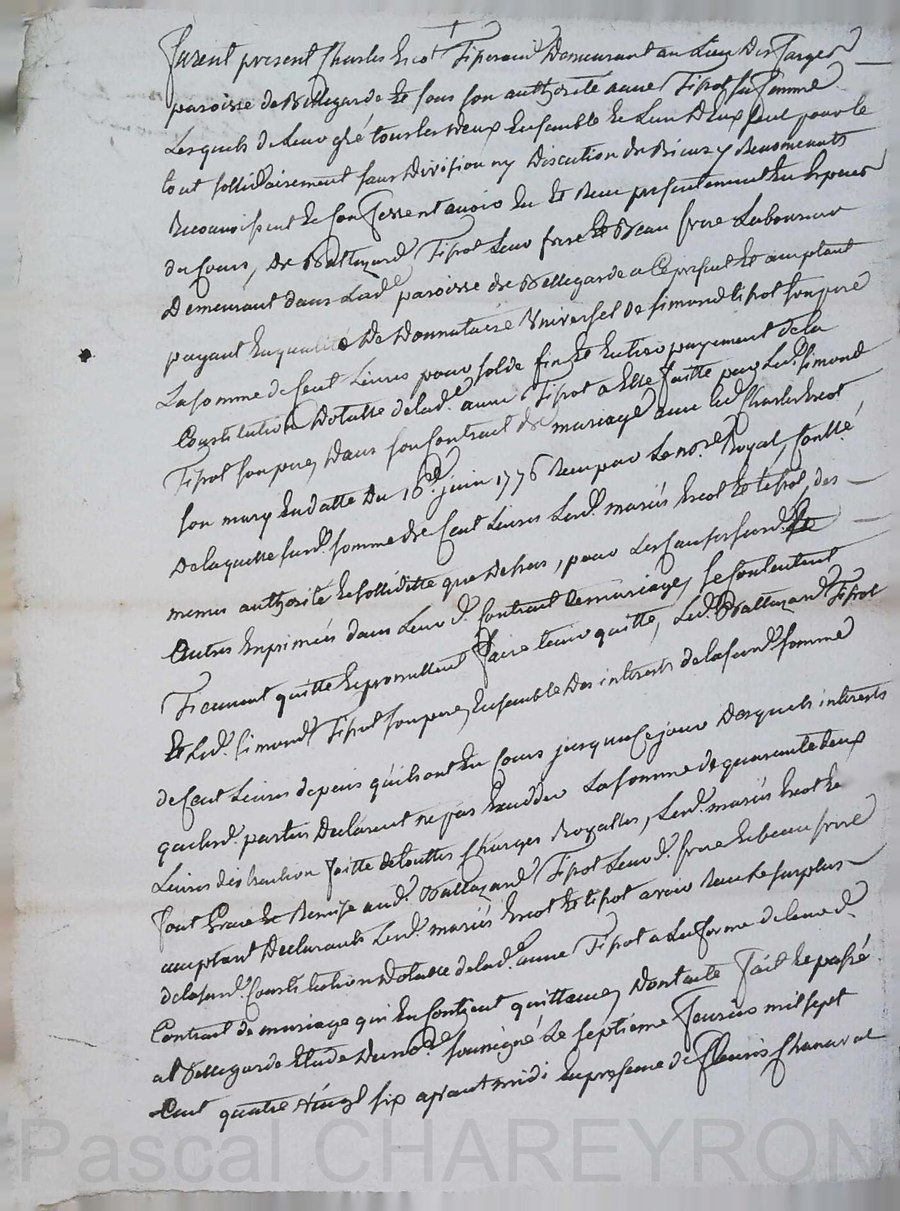 furent present Charles Escot Tiperain Demeurant au Lieu Des farges
paroisse de Bellegarde Et sous son authorité anne Tipot sa femme
Lesquels de Leur gré tous les deux Ensemble Et L'un D'Eux seul pour le
tout sollidairement sans Division ny Discution de Biens y Renoncants
Reconnoissent Et Confessent avoir Eu Et Reçu presentement En Especes
du Cours, De Baltazard Tipot Leur frere Et Beau frere Laboureur
Demeurant dans Lad.e paroisse de Bellegarde a Ce present Et acceptant
payant En qualité De Donnataire Universel de Simond tipot Son pere
La somme de Cent Livres pour solde fin Et Entier payement de la
Constitution Dotalle de lad.e anne Tipot a Elle faitte par Led. Simond
Tipot son pere, Dans son Contract de mariage avec led. Charles Escot
son mary En datte Du 16.e juin 1776 Reçu par Le no.re Royal, soussé.
De laquelle susd. somme de Cent Livres Lesd. mariés Escot Et tipot, des
memes authorité Et solliditté que Dessus, pour Les Causes susd.
Autres Exprimées dans Leur d. Contract de mariage, se Contentent
Tiennent quitte Et promettent faire tenir quitte, Led. Baltazard Tipot
Et Led. Simond Tipot son pere, Ensemble Des interests de la susd. somme
de Cent Livres depuis qu'ils ont Eu Cours jusqu'a Ce jour Desquels interests
que lesd. parties Declarent ne pas Exceder La somme de quarante deux
Livres distraction faitte de touttes Charges Royalles, Lesd. mariés Escot Et
font Grace Et Remise aud. Baltazard Tipot Leur d. frere Et beau frere
acceptant Declarants Lesd. mariés Escot Et tipot avoir Reçu Le surplus
de la susd. Constitution Dotalle de lad. anne Tipot a La forme de leur d.
Contract de mariage qui En Contient quittance, Dont acte fait Et passé
a Bellegarde Etude Du no.re soussigné, Le septieme fevrier mil sept
Cent quatre Vingt six apres midi En presence de Fleuris Chanavat
Pascal CHAREYRON